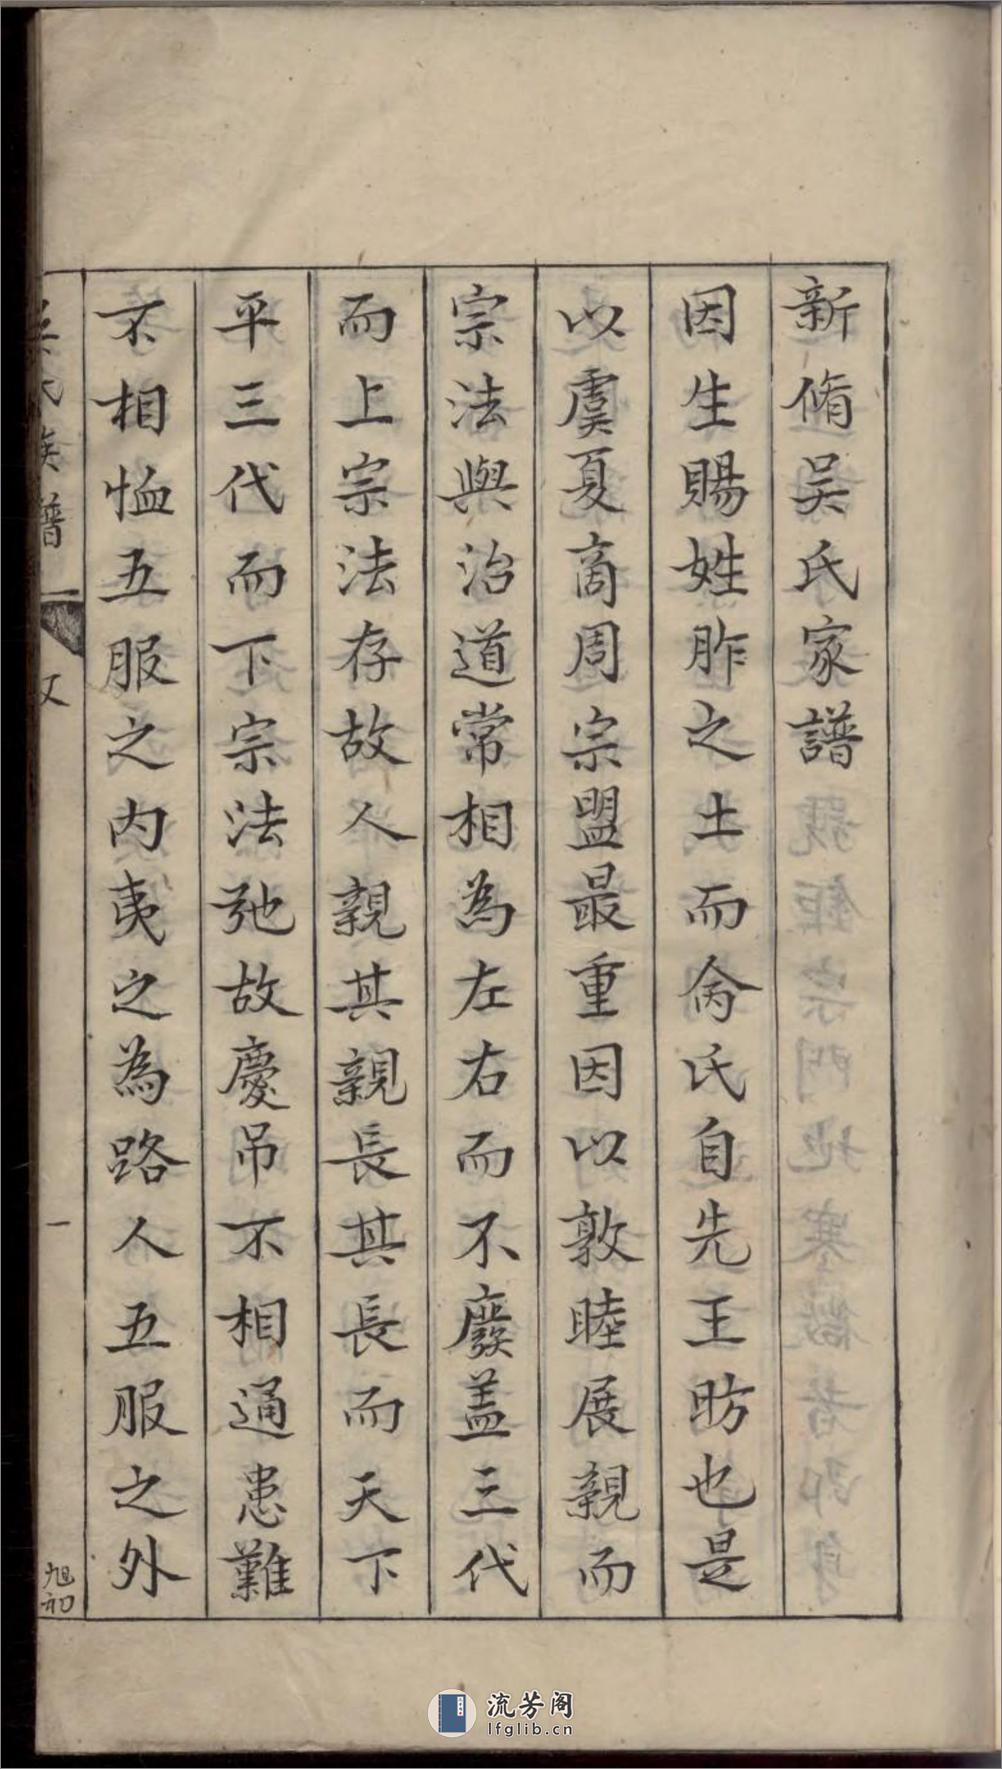 新脩吴氏家譜
因生賜姓胙之土而命氏自先王昉也是
以虞夏商周宗盟最重因以敦睦展親而
宗法與治道常相為左右而不廢盖三代
而上宗法存故人親其親長其長而天下
平三代而下宗法弛故慶吊不相通患難
不相恤五服之内夷之為路人五服之外
氏族譜
一
旭初
流芳阁
lfglib.cn